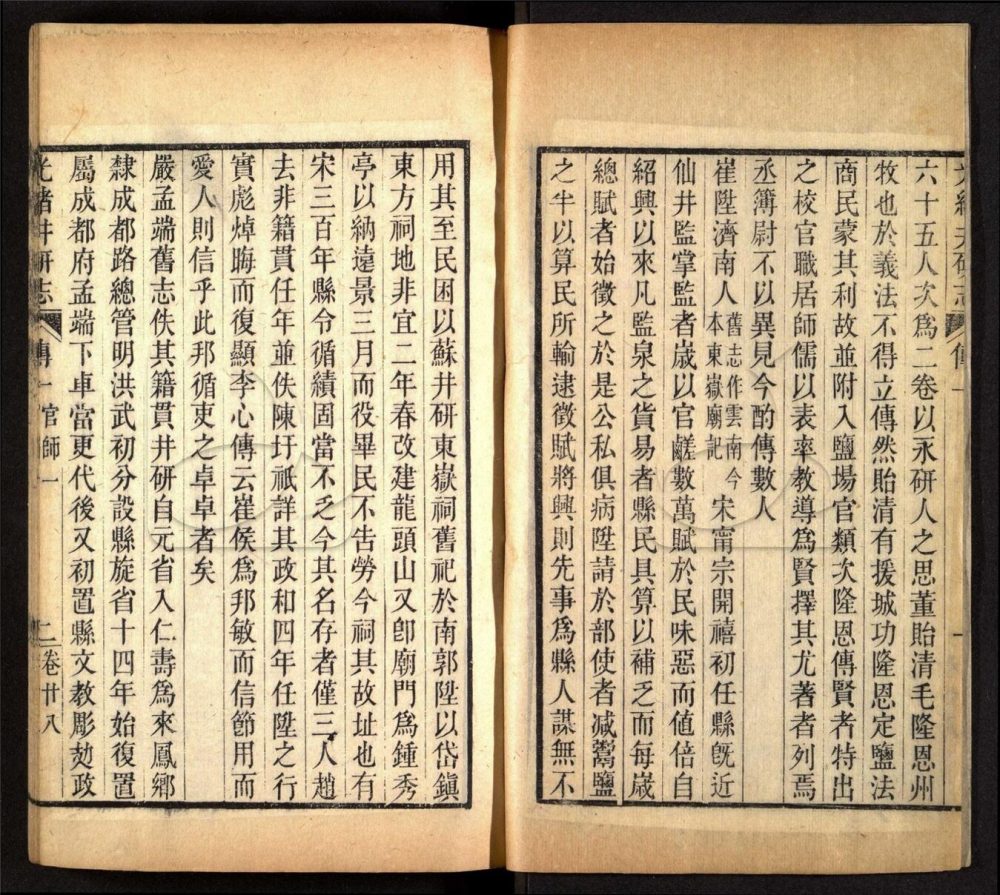 六十五人次爲二卷以永研人之思董貽清毛隆恩州
牧也於義法不得立傳然貽清有援城功隆恩定鹽法
商民蒙其利故並附入鹽場官類次隆恩傳賢者特出
之校官職居師儒以表率教導爲賢擇其尤著者列焉
丞簿尉不以異見今酌傳數人
崔陞濟南人舊志作雲南今本東嶽廟記宋甯宗開禧初任縣旣近
仙井監掌監者歲以官鹺數萬賦於民味惡而値倍自
紹興以來凡監泉之貨易者縣民具算以補乏而每歲
總賦者始徵之於是公私俱病陞請於部使者減鬻鹽
之半以算民所輸逮徵賦將興則先事爲縣人謀無不
用其至民困以蘇井研東嶽祠舊祀於南郭陞以岱鎭
東方祠地非宜二年春改建龍頭山又卽廟門爲鍾秀
亭以納遠景三月而役畢民不告勞今祠其故址也有
宋三百年縣令循績固當不乏今其名存者僅三人趙
去非籍貫任年並佚陳圩祇詳其政和四年任陞之行
實彪焯晦而復顯李心傳云崔侯爲邦敏而信節用而
愛人則信乎此邦循吏之卓卓者矣
嚴孟端舊志佚其籍貫井研自元省入仁壽爲來鳳鄉
隸成都路總管明洪武初分設縣旋省十四年始復置
屬成都府孟端下車當更代後又初置縣文教彫攰政
光緒井研志 傳一 官師一 二 卷廿八